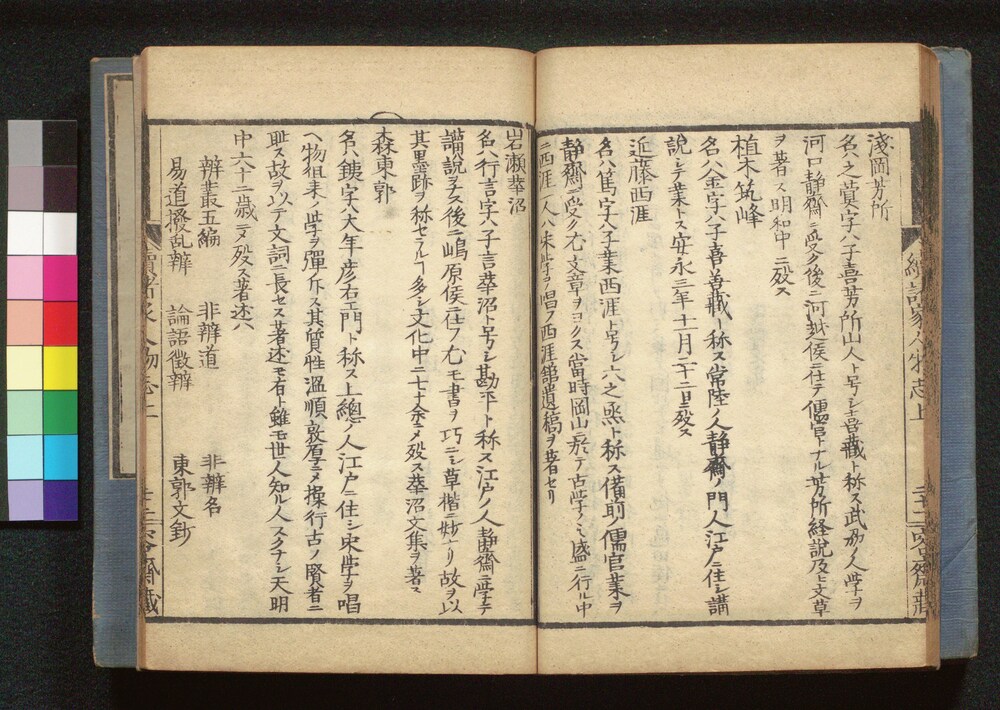 淺岡芳所
名ハ之蕡字ハ子喜芳所山人ト号シ喜藏ト称ス武州ノ人学ヲ
河口靜齋ニ受ク後ニ河越侯ニ仕テ儒官トナル芳所経説及ヒ文草
ヲ著ス明和中ニ殁ス
植木筑峰
名ハ金字ハ子喜善藏ト称ス常陸ノ人靜齋ノ門人江戸ニ住シ講
説シテ業トス安永三年十一月二十二日ニ殁ス
近藤西涯
名ハ篤字ハ子業西涯ト号シ六之丞ト称ス備前ノ儒官業ヲ
靜齋ニ受ク尤文章ヲヨクス當時岡山ニ於テ古学ノミ盛ニ行ル中
ニ西涯一人ハ宋学ヲ唱フ西涯舘遺稿ヲ著セリ
續諸家人物志上
岩瀬華沼
名ハ行言字ハ子言華沼ト号シ勘平ト称ス江戸ノ人靜齋ニ学テ
講説ヲ ス後ニ嶋原侯ニ仕フ尤モ書ヲ巧ニシ草楷ニ妙ナリ故ヲ以
其墨跡ヲ称セラルヿ多シ文化中ニ七十余ニメ殁ス華沼文集ヲ著ス
森東郭
名ハ鐵字ハ大年彦右エ門ト称ス上總ノ人江戸ニ住シ宋学ヲ唱
ヘ物徂徠ノ学ヲ彈斥ス其質性溫順敦厚ニメ操行古ノ賢者ニ
耻ス故ヲ以テ文詞ニ長セス著述モ右ト雖モ世人知ル人スクナシ天明
中六十二歳ニメ殁ス著述ハ
辨叢五編 非辨道 非辨名
易道撥乱辨 論語徴辨 東郭文鈔